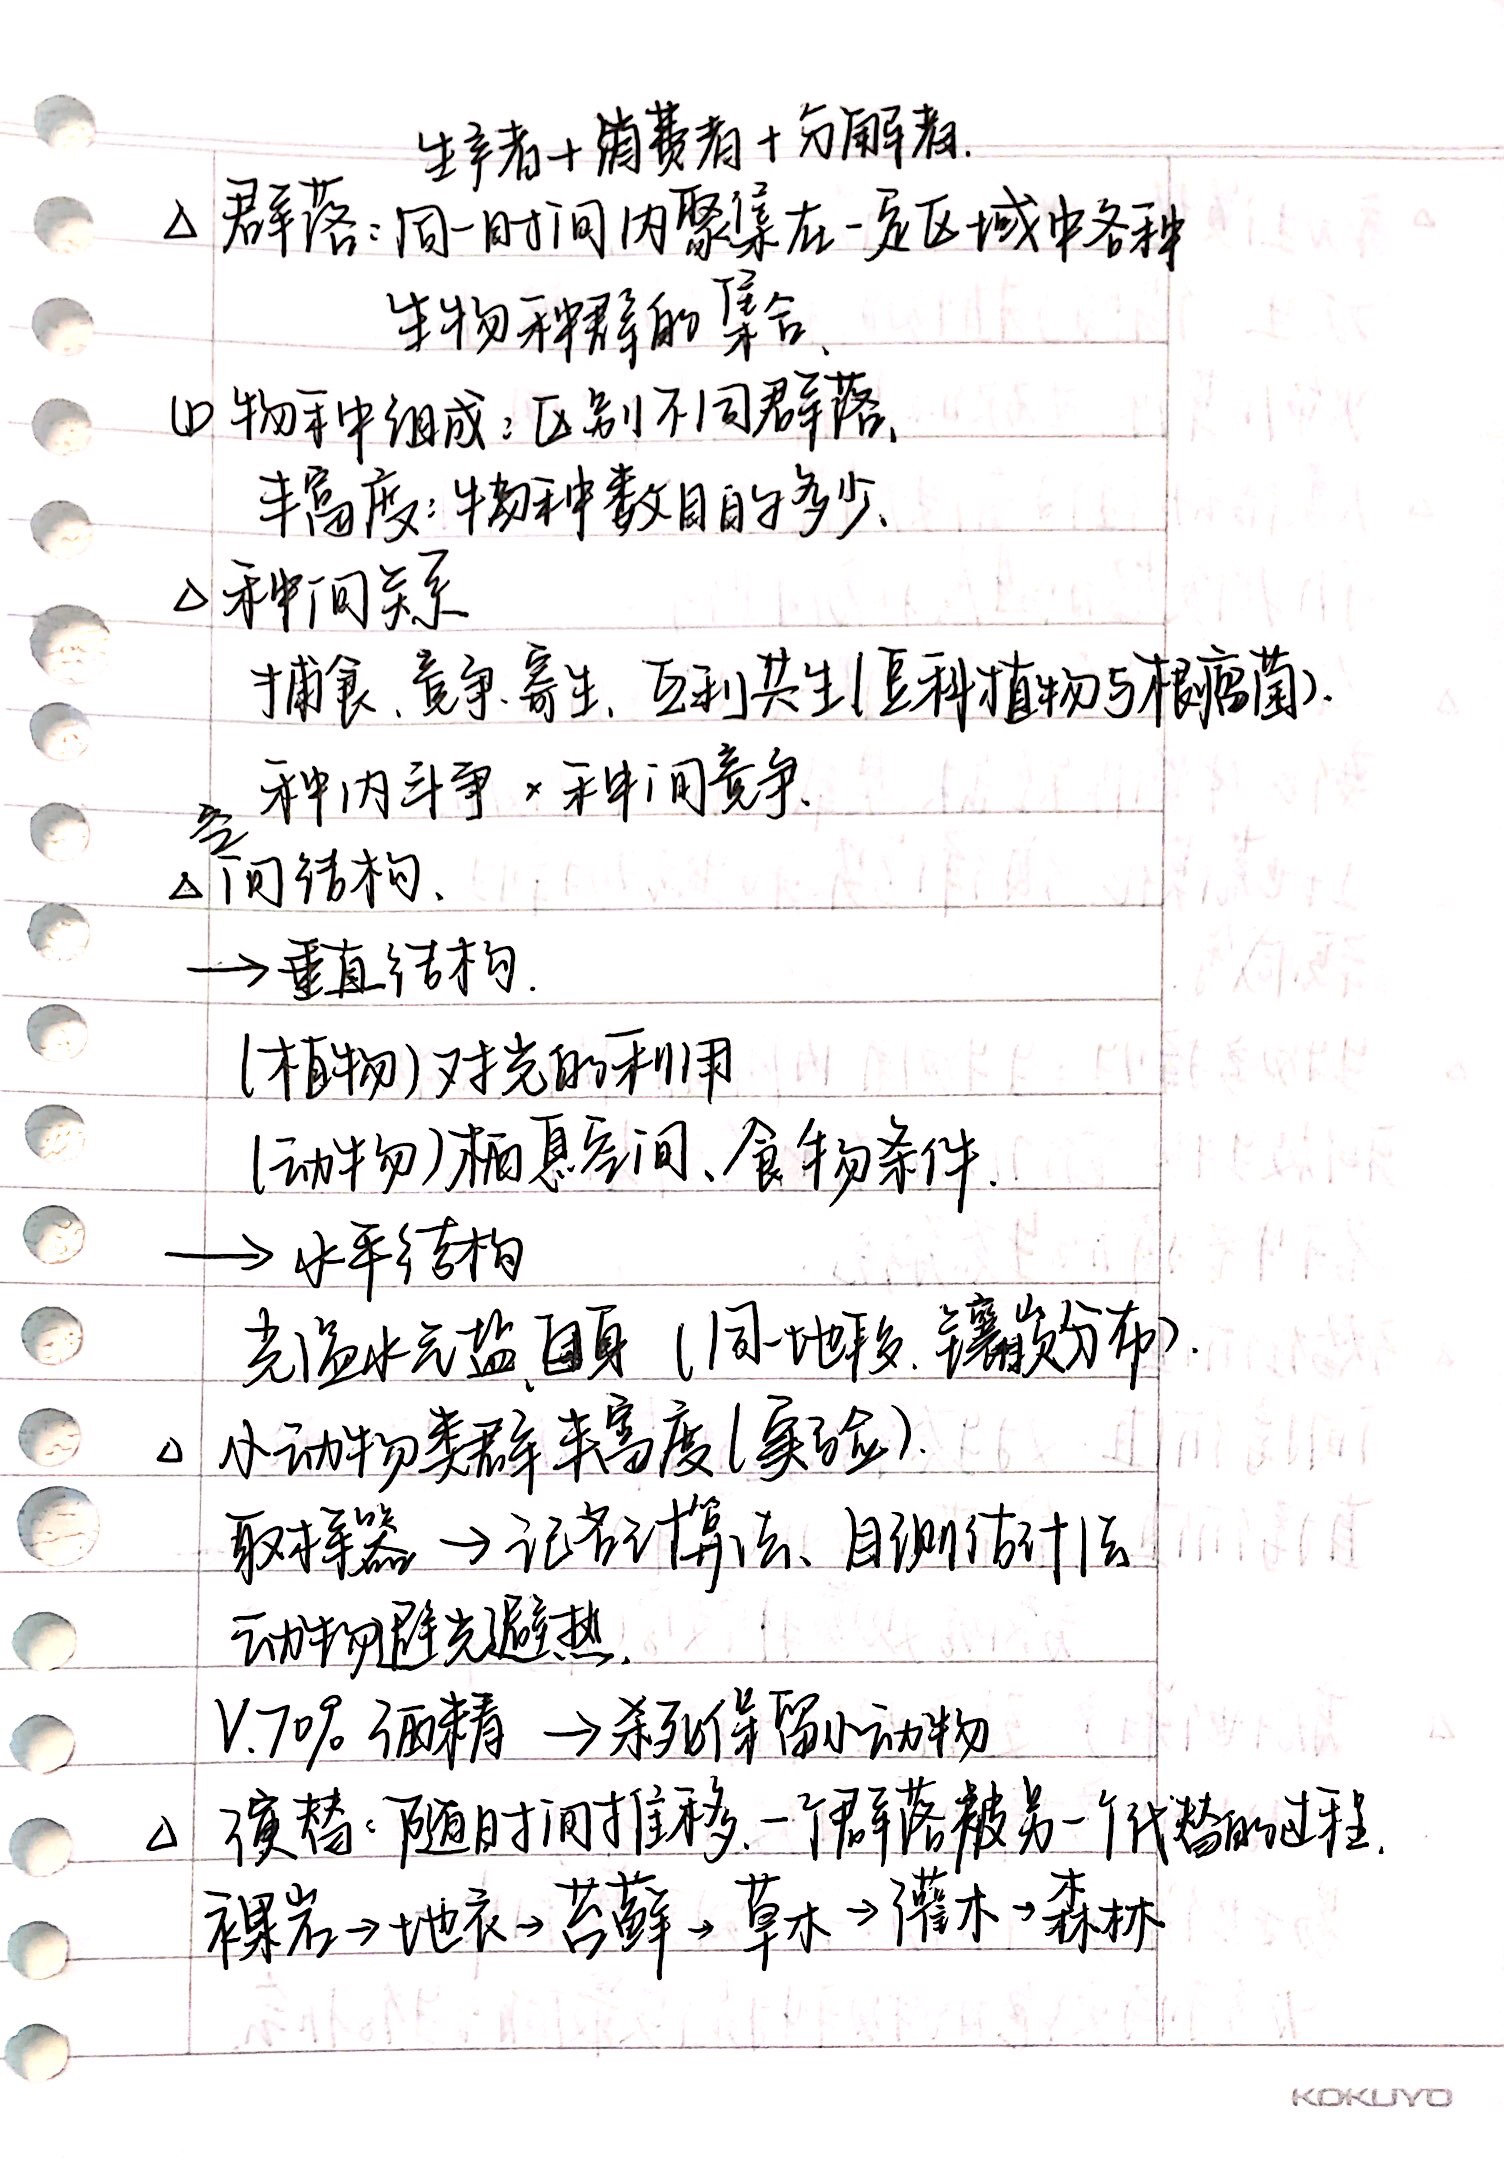 生产者+消费者+分解者.
△ 群落:同一时间内聚集在一定区域中各种
生物种群的集合、
(1) 物种组成:区别不同群落、
丰富度:物种数目的多少、
△ 种间关系
捕食、竞争、寄生、互利共生(豆科植物与根瘤菌).
种内斗争 × 种间竞争.
△ 空间结构、
→垂直结构.
(植物)对光的利用
(动物)栖息空间、食物条件.
→水平结构
光温水无盐、自身 (同一地段、镶嵌分布).
△ 小动物类群丰富度(实验).
取样器 → 记名计算法、目测估计法
动物避光避热.
V.70% 酒精 → 杀死保留小动物
△ 演替:随时间推移、一个群落被另一个代替的过程.
裸岩→地衣→苔藓→草木→灌木→森林
KOKUYO